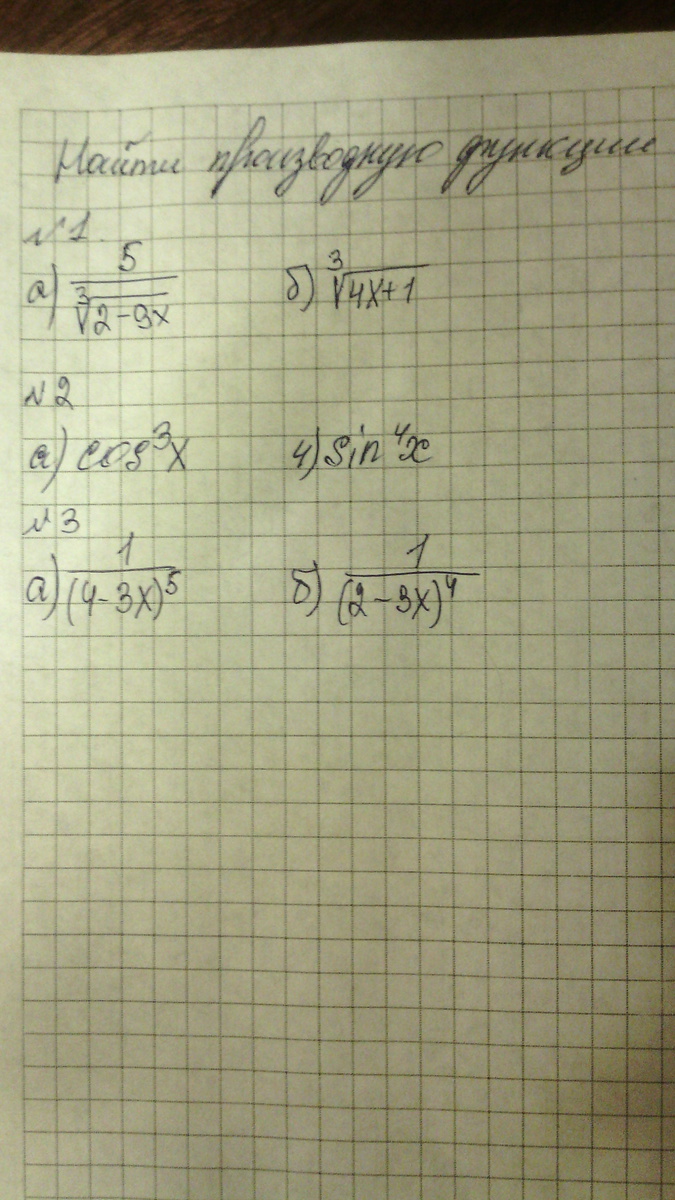 Найти производную функции
№1.
а) 5/∛(2-9x) б) ∛(4x+1)
№2
а) cos³x 4) sin⁴x
№3
а) 1/(4-3x)⁵ б) 1/(2-3x)⁴